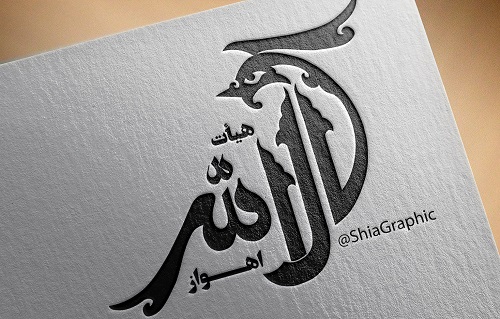 هیأت
آل الله
اهواز
@ShiaGraphic